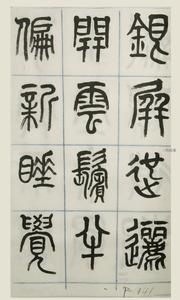 銀屏迤邐
開雲鬢半
偏新睡覺
141